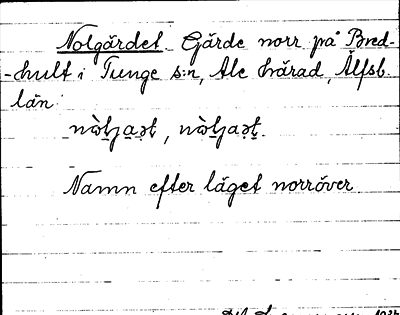 Nolgärdet. Gärde norr på Bred-
-hult i Tunge s:n, Ale härad, Älfsb.
län.
Namn efter läget norröver